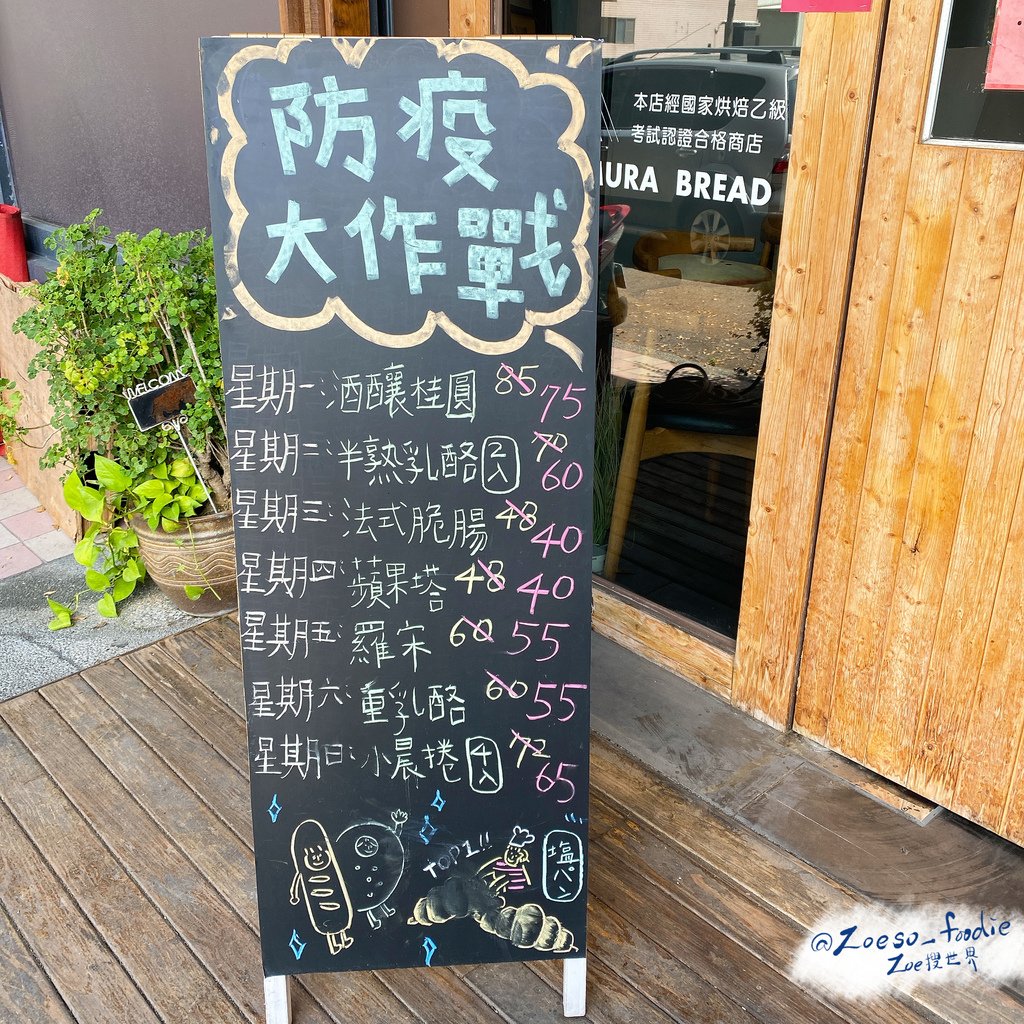 防疫
大作戰
星期一:酒釀桂圓 85 75
星期二:半熟乳酪 2入 70 60
星期三:法式脆腸 48 40
星期四:蘋果塔 48 40
星期五:羅宋 60 55
星期六:重乳酪 60 55
星期日:小晨捲 4入 72 65
TOP1!!
塩パン
本店經國家烘焙乙級
考試認證合格商店
URA BREAD
WELCOME
@Zoeso_foodie
Zoe搜世界